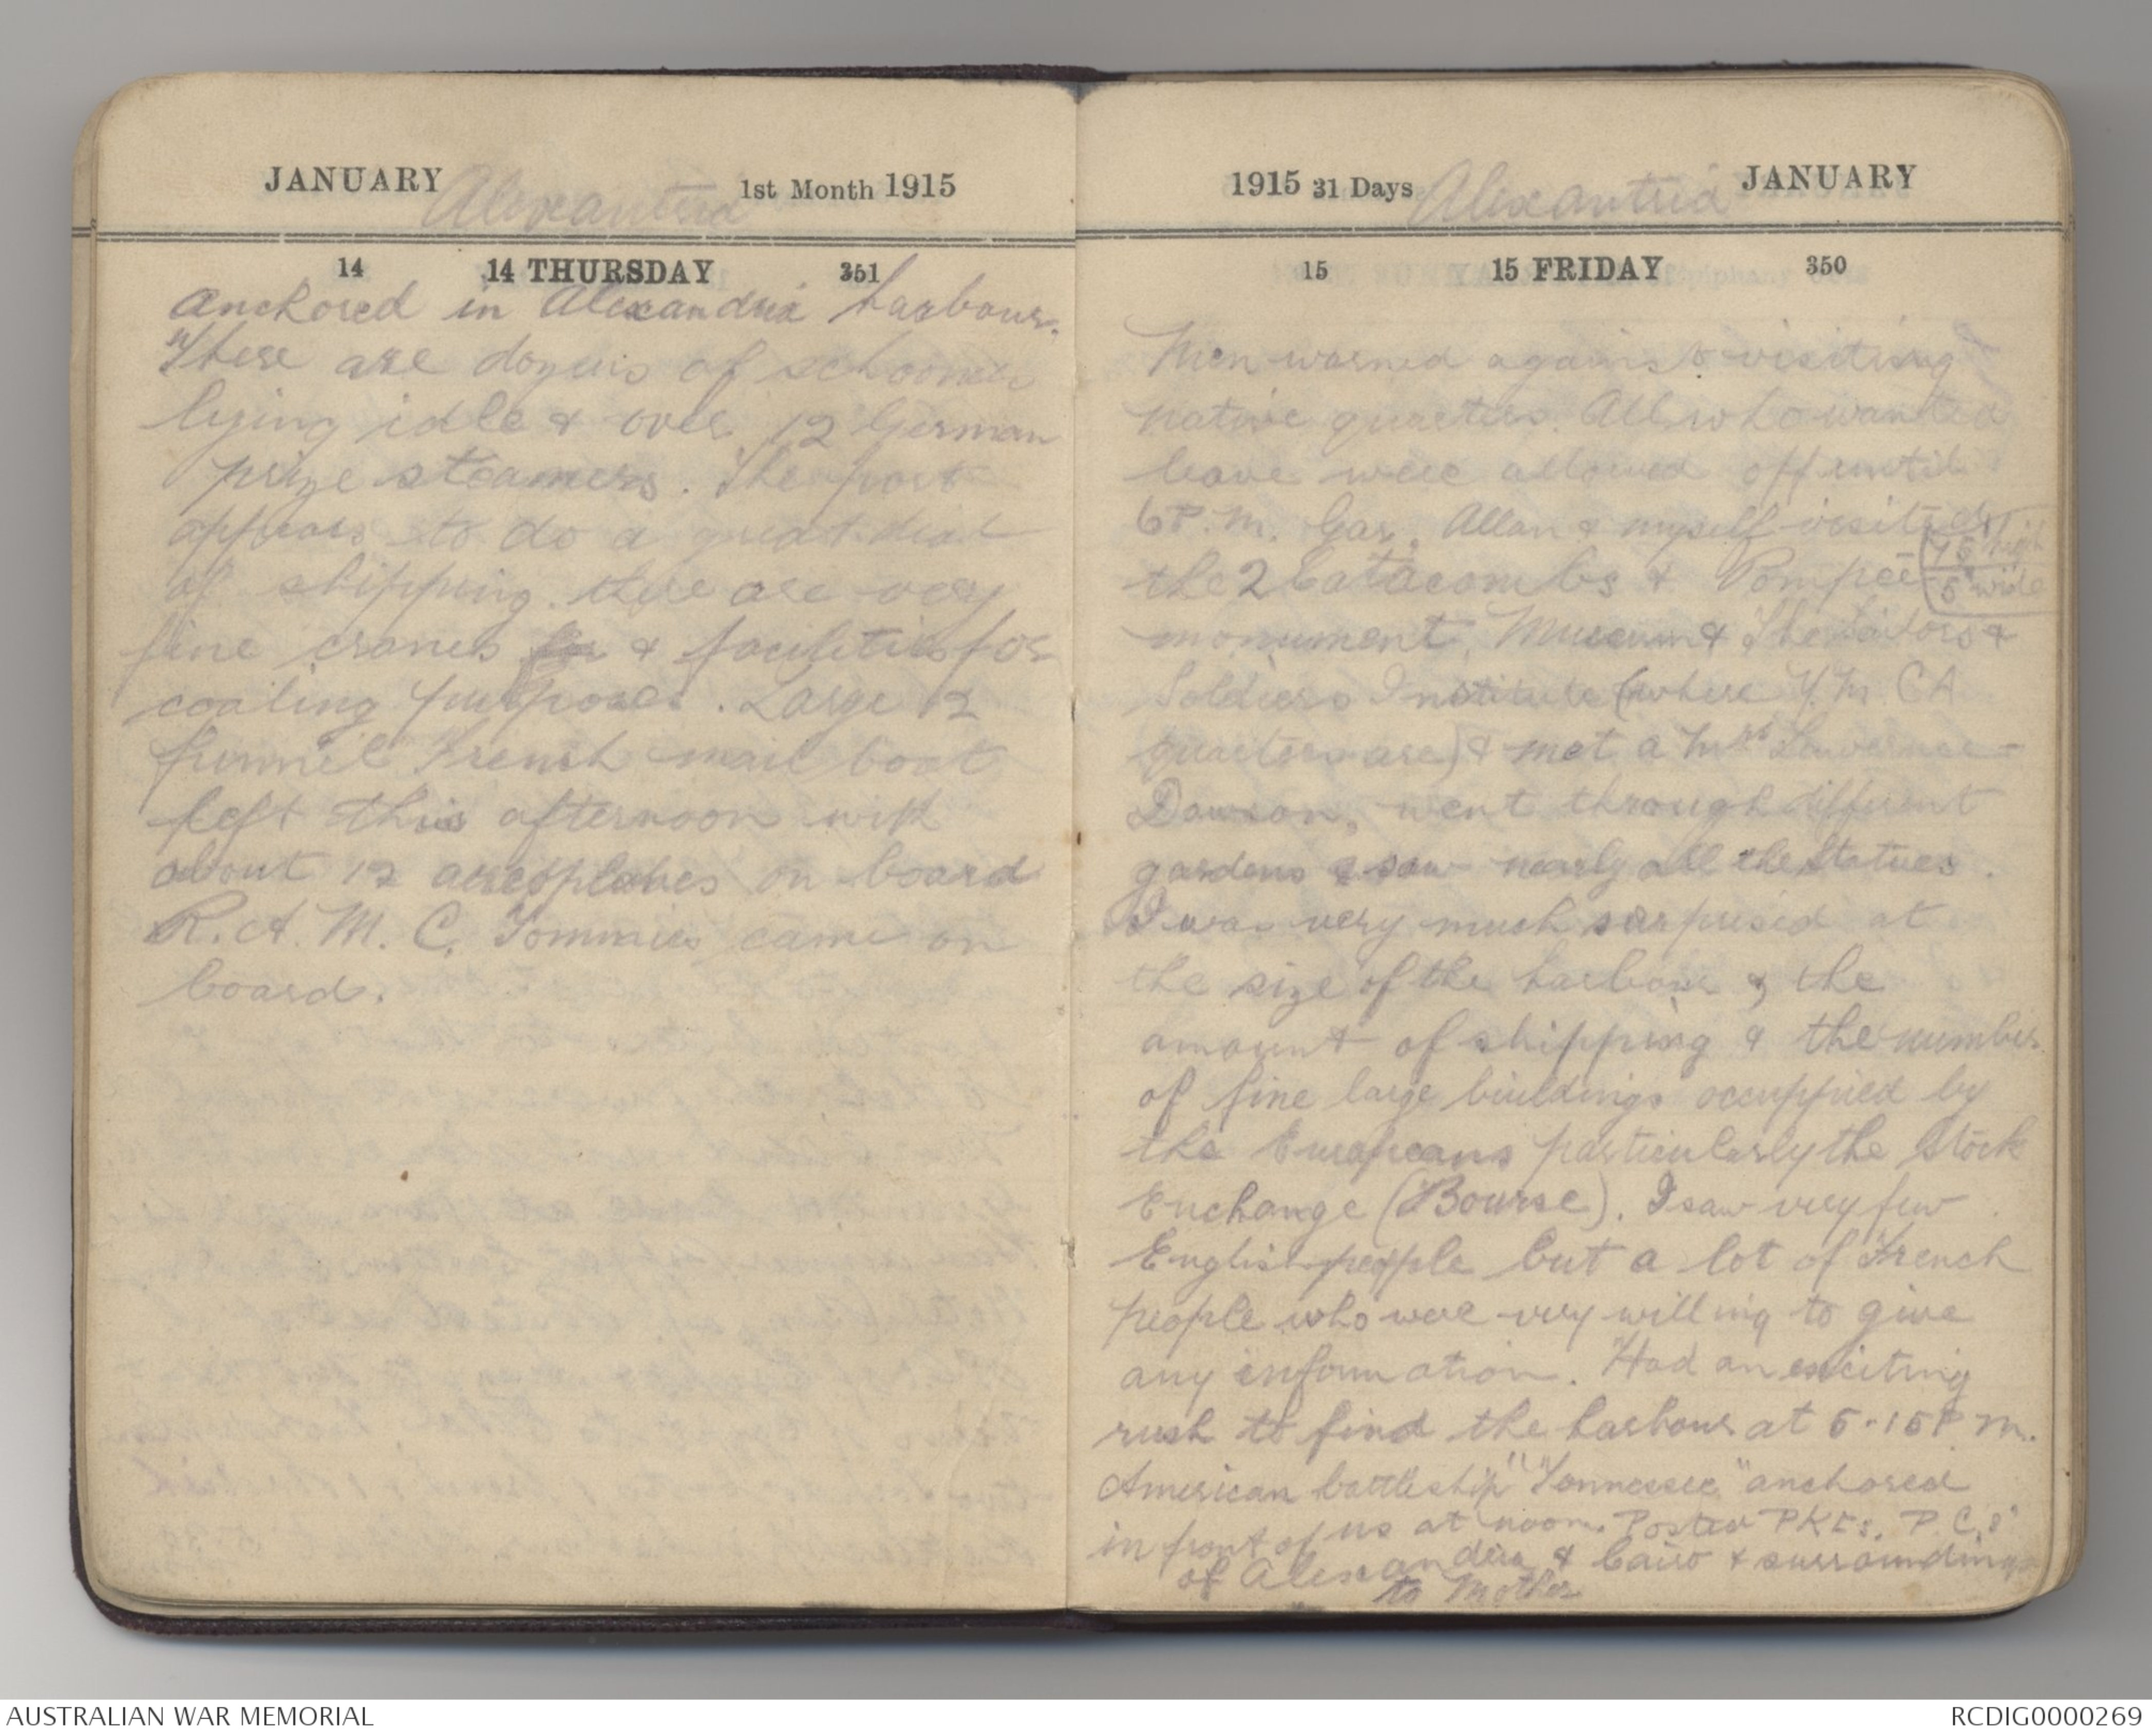 JANUARY Alexantria 1st Month 1915
14 14 THURSDAY 351
anchored in Alexandria harbour.
There are dozens of schooners
lying idle & over 12 German
prize steamers. The port
appears to do a great deal
of shipping. there are very
fine cranes & facilities for
coaling purposes. Large 2
funnel French mail boat
left this afternoon with
about 12 aeroplanes on board
R.A.M.C. Tommies came on
board.
1915 31 Days Alexantria JANUARY
15 15 FRIDAY 350
Men warned against visiting
native quarters. All who wanted
leave were allowed off until
6 P.M. Gar, Allan & myself visited
the 2 Catacombs & Pompeii
75' high
5' wide
monument, Museum & The Sailors &
Soldiers Institute (where Y.M.CA
quarters are) & met a Mrs
Dawson, went through different
gardens & saw nearly all the Statues.
I was very much surprised at
the size of the harbour & the
amount of shipping & the number
of fine large buildings occuppied by
the Europeans particularly the Stock
Enchange (Bourse). I saw very few
English people but a lot of French
people who were very willing to give
any information. Had an exciting
rush to find the harbour at 5.15 P.M.
American battleship "Tennessee" anchored
in front of us at noon. Posted PKts. P.C.s
of Alexandria & Cairo & surroundings
to Mother
AUSTRALIAN WAR MEMORIAL
RCDIG0000269